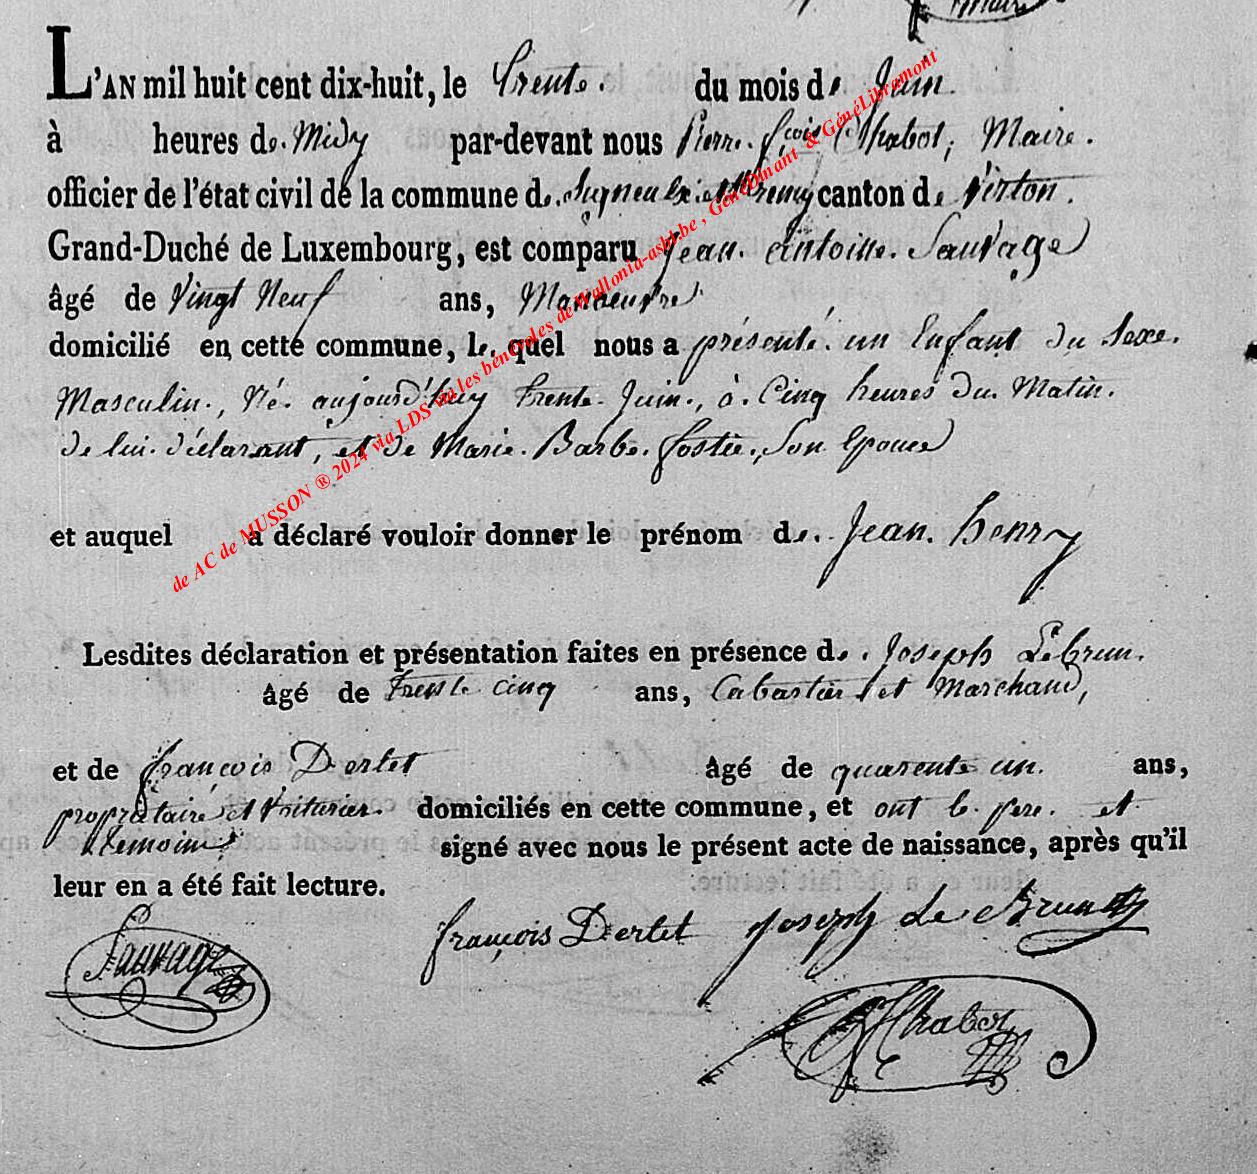 L'AN mil huit cent dix-huit, le Trente. du mois de Juin.
à heures de. Midy par-devant nous Pierre. fçois Chabot, Maire.
officier de l'état civil de la commune de. Signeulx. et Bremy canton de Virton.
Grand-Duché de Luxembourg, est comparu Jean. Antoine. Sauvage
âgé de Vingt Neuf ans, Manoeuvre
domicilié en cette commune, le. quel nous a présenté. un Enfant du Sexe.
Masculin., Né. aujourd'huy trente. Juin., à. Cinq heures du. Matin.
de lui. déclarant, et de Marie. Barbe. fostie., Son Epouce
et auquel a déclaré vouloir donner le prénom de. Jean. henry
Lesdites déclaration et présentation faites en présence de. Joseph Lebrun.
âgé de trente cinq ans, Cabartier et Marchand,
et de françois Dertet âgé de quarente un. ans,
propriétaire et Voiturier domiciliés en cette commune, et ont le. pere. et
temoins signé avec nous le présent acte de naissance, après qu'il
leur en a été fait lecture.
Sauvage françois Dertet joseph de Brun
Chabot
de AC de MUSSON ® 2024 via LDS via les bénévoles de Wallonia-asbl.be , GénéDinant & GénéLibramont